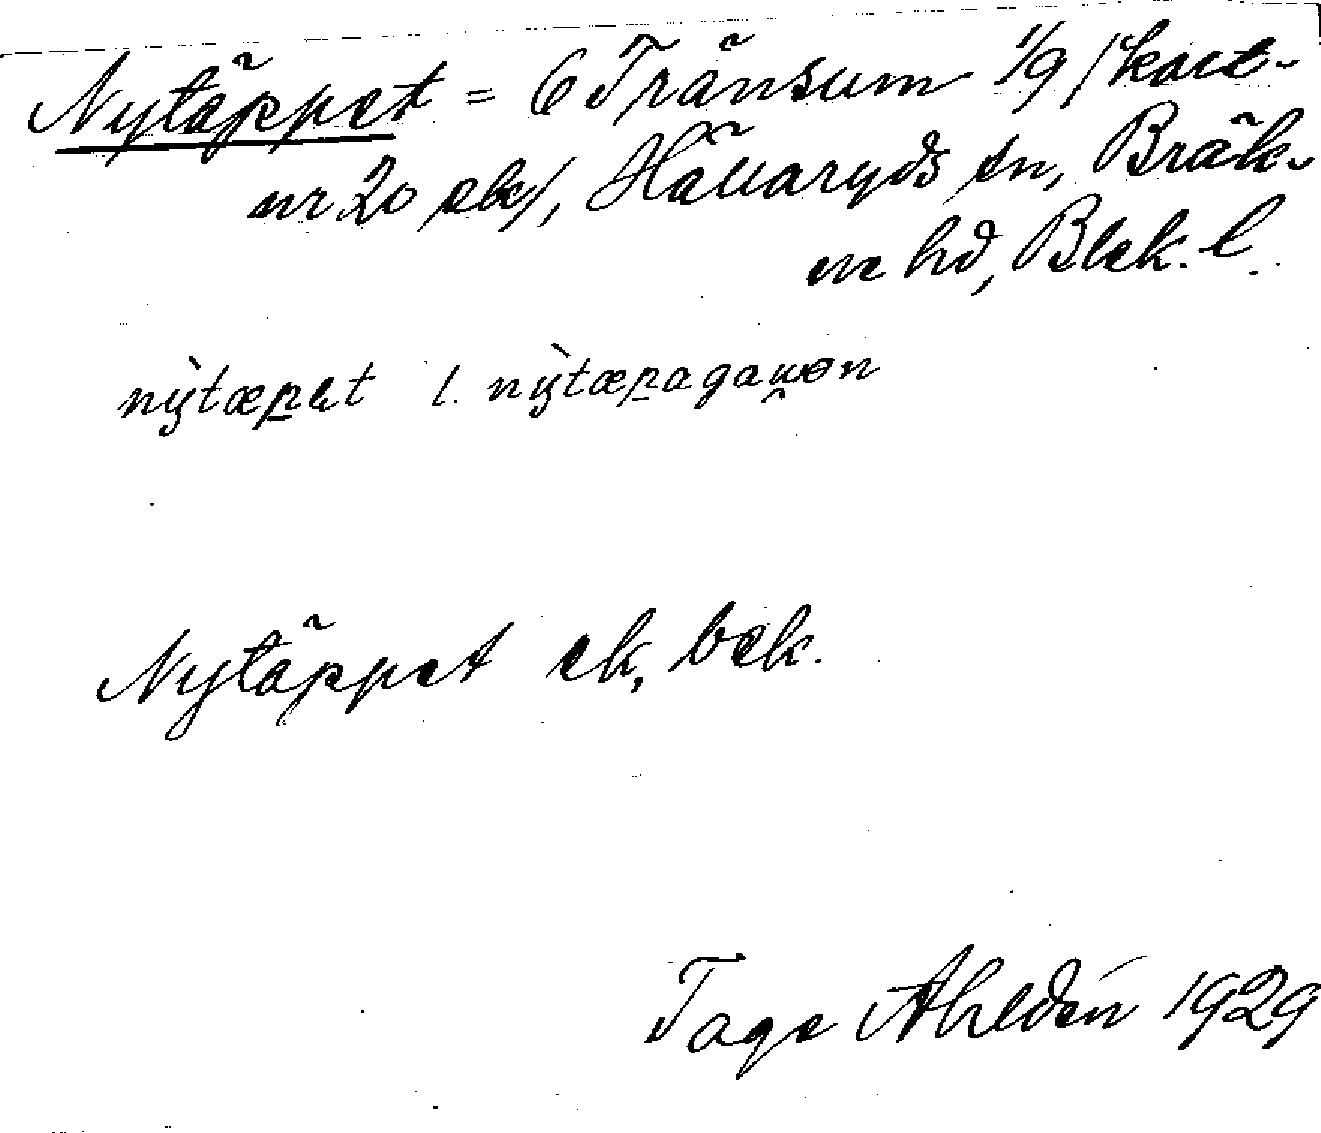 Nytäppet = 6 Tränsum 1/9 /kart-
nr 20 ek/, Hällaryds sn, Bräk-
ne hd, Blek. l.
nỳtæpet l. nỳtæpagaɯən
Nytäppet ek, bek.
Tage Ahldén 1929